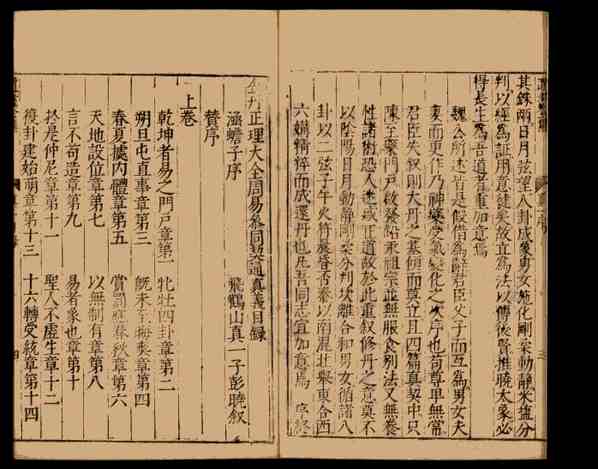 其銖兩日月弦望八卦成象男女施化剛柔動靜米鹽分
判以經為証用意健矣故立為法以傳後賢推曉大象必
得長生為吾道者重加意焉
魏公所述皆是假借為辭君臣父子而互為男女夫
妻而更作乃神藥變氣變化之次序也苟尊卑無常
君臣失敘則大丹之基傾而莫立且四篇真契中只
陳至藥門戶啟發鉛汞祖宗並無服食別法又無養
性諸術恐人迷或正道故於此重敘修丹之意莫不
以陰陽日月動靜剛柔分判坎離合和男女循諸八
卦以二弦子午火符晨昏否泰以南混北舉東合西
六媾精粹而成還丹也凡吾同志宜加意焉 序終
金丹正理大全周易參同契通真義目錄
涵蟾子序 飛鶴山真一子彭曉敘
贊序
上卷
乾坤者易之門戶章第一 牝牡四卦章第二
朔旦屯直事章第三 既未至晦爽章第四
春夏據內體章第五 賞罰應春秋章第六
天地設位章第七 以無制有章第八
言不苟造章第九 易者象也章第十
於是仲尼章第十一 聖人不虛生章十二
復卦建始萌章第十三 十六轉受統章第十四